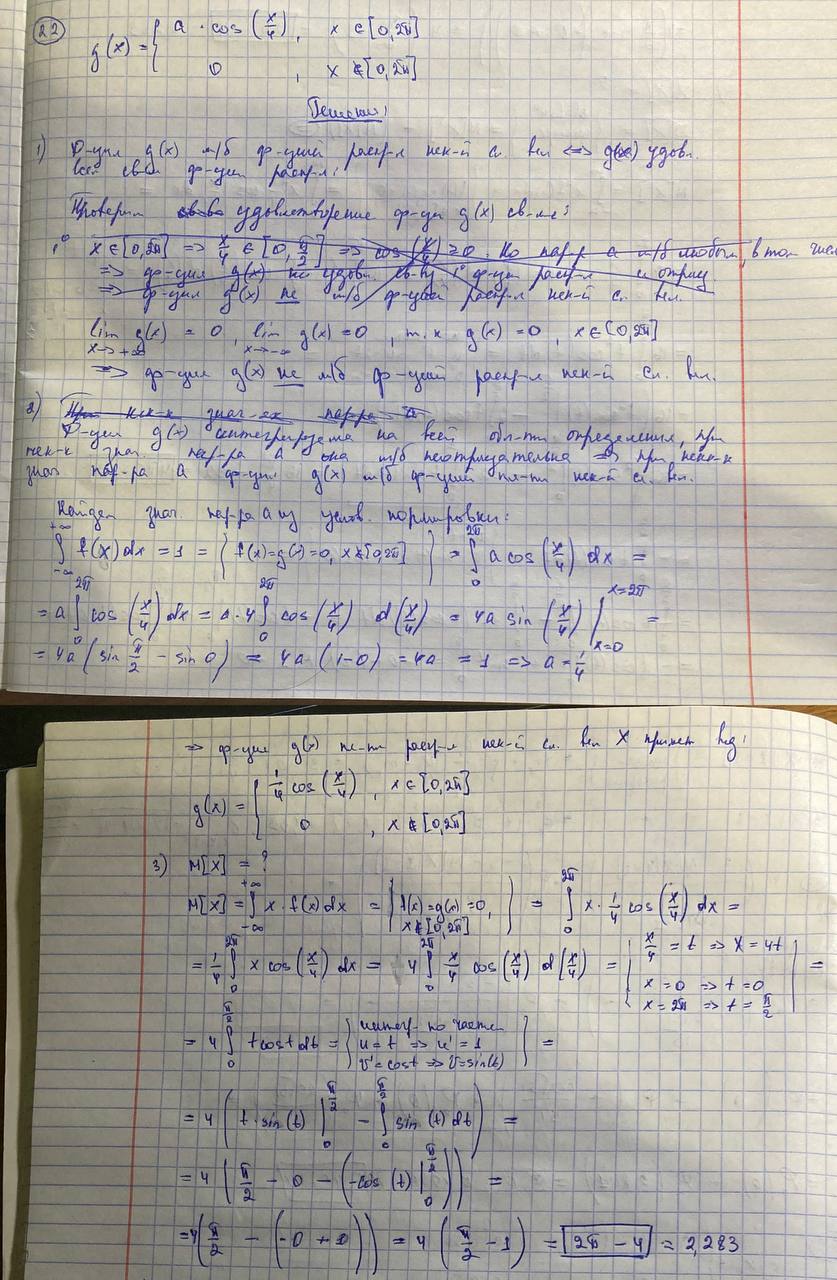 22
g(x) = { a · cos(x/4), x ∈ [0, 2π]
0, x ∉ [0, 2π]
Решение:
1) Ф-ция g(x) м/б ф-цией распр-я нек-й сл. вел <=> g(x) удовл.
всем св-м ф-ции распр-я:
Проверим удовлетворение ф-ции g(x) св-ме:
1° x ∈ [0, 2π] => x/4 ∈ [0, π/2] => cos(x/4) ≥ 0. Но пар-р a м/б любым, в том числ
=> ф-ция g(x) не удовл. св-ву 1° ф-ции распр
=> ф-ция g(x) не м/б ф-цией распр-я нек-й сл. вел.
lim g(x) = 0, lim g(x) = 0, т.к. g(x) = 0, x ∈ [0, 2π]
x→+∞ x→-∞
=> ф-ция g(x) не м/б ф-цией распр-я нек-й сл. вел.
2) При нек-х знач-ях пар-ра a
Ф-ция g(x) интегрируема на всей обл-ти определения, при
нек-х знач. пар-ра a она м/б неотрицательна => при неко-х
знач пар-ра a ф-ция g(x) м/б ф-цией пл-ти нек-й сл. вел.
Найдем знач. пар-ра a из услов. нормировки:
∫_{-∞}^{+∞} f(x)dx = 1 = { f(x)=g(x)=0, x∉[0,2π] } = ∫_0^{2π} a cos(x/4) dx =
= a ∫_0^{2π} cos(x/4) dx = a·4 ∫_0^{2π} cos(x/4) d(x/4) = 4a sin(x/4) |_{x=0}^{x=2π} =
= 4a (sin π/2 - sin 0) = 4a (1-0) = 4a = 1 => a = 1/4
=> ф-ция g(x) пл-ти распр-я нек-й сл. вел X примет вид:
g(x) = { 1/4 cos(x/4), x ∈ [0, 2π]
0, x ∉ [0, 2π]
3) M[X] = ?
M[X] = ∫_{-∞}^{+∞} x · f(x) dx = { f(x) = g(x) = 0, x ∉ [0, 2π] } = ∫_0^{2π} x · 1/4 cos(x/4) dx =
= 1/4 ∫_0^{2π} x cos(x/4) dx = 4 ∫_0^{2π} x/4 cos(x/4) d(x/4) = { x/4 = t => x = 4t
x = 0 => t = 0
x = 2π => t = π/2 } =
= 4 ∫_0^{π/2} t cos t dt = { интегр. по частям
u = t => u' = 1
v' = cos t => v = sin(t) } =
= 4 ( t · sin(t) |_0^{π/2} - ∫_0^{π/2} sin(t) dt ) =
= 4 ( π/2 - 0 - (-cos(t) |_0^{π/2}) ) =
= 4 ( π/2 - (-0 + 1) ) = 4 ( π/2 - 1 ) = 2π - 4 = 2,283